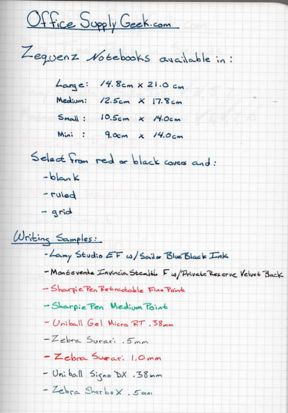 OfficeSupplyGeek.com
Zequenz Notebooks available in:
Large: 14.8cm x 21.0 cm
Medium: 12.5cm x 17.8cm
Small: 10.5cm x 14.0cm
Mini: 9.0cm x 14.0cm
Select from red or black covers and:
- blank
- ruled
- grid
Writing Samples:
- Lamy Studio EF w/ Sailor Blue Black Ink
- Monteverde Invincia Stealth F w/ Private Reserve Velvet Black
- Sharpie Pen Retractable Fine Point
- Sharpie Pen Medium Point
- Uniball Gel Micro RT .38mm
- Zebra Surari .5mm
- Zebra Surari 1.0mm
- Uniball Signo DX .38mm
- Zebra Sharbo X .5mm